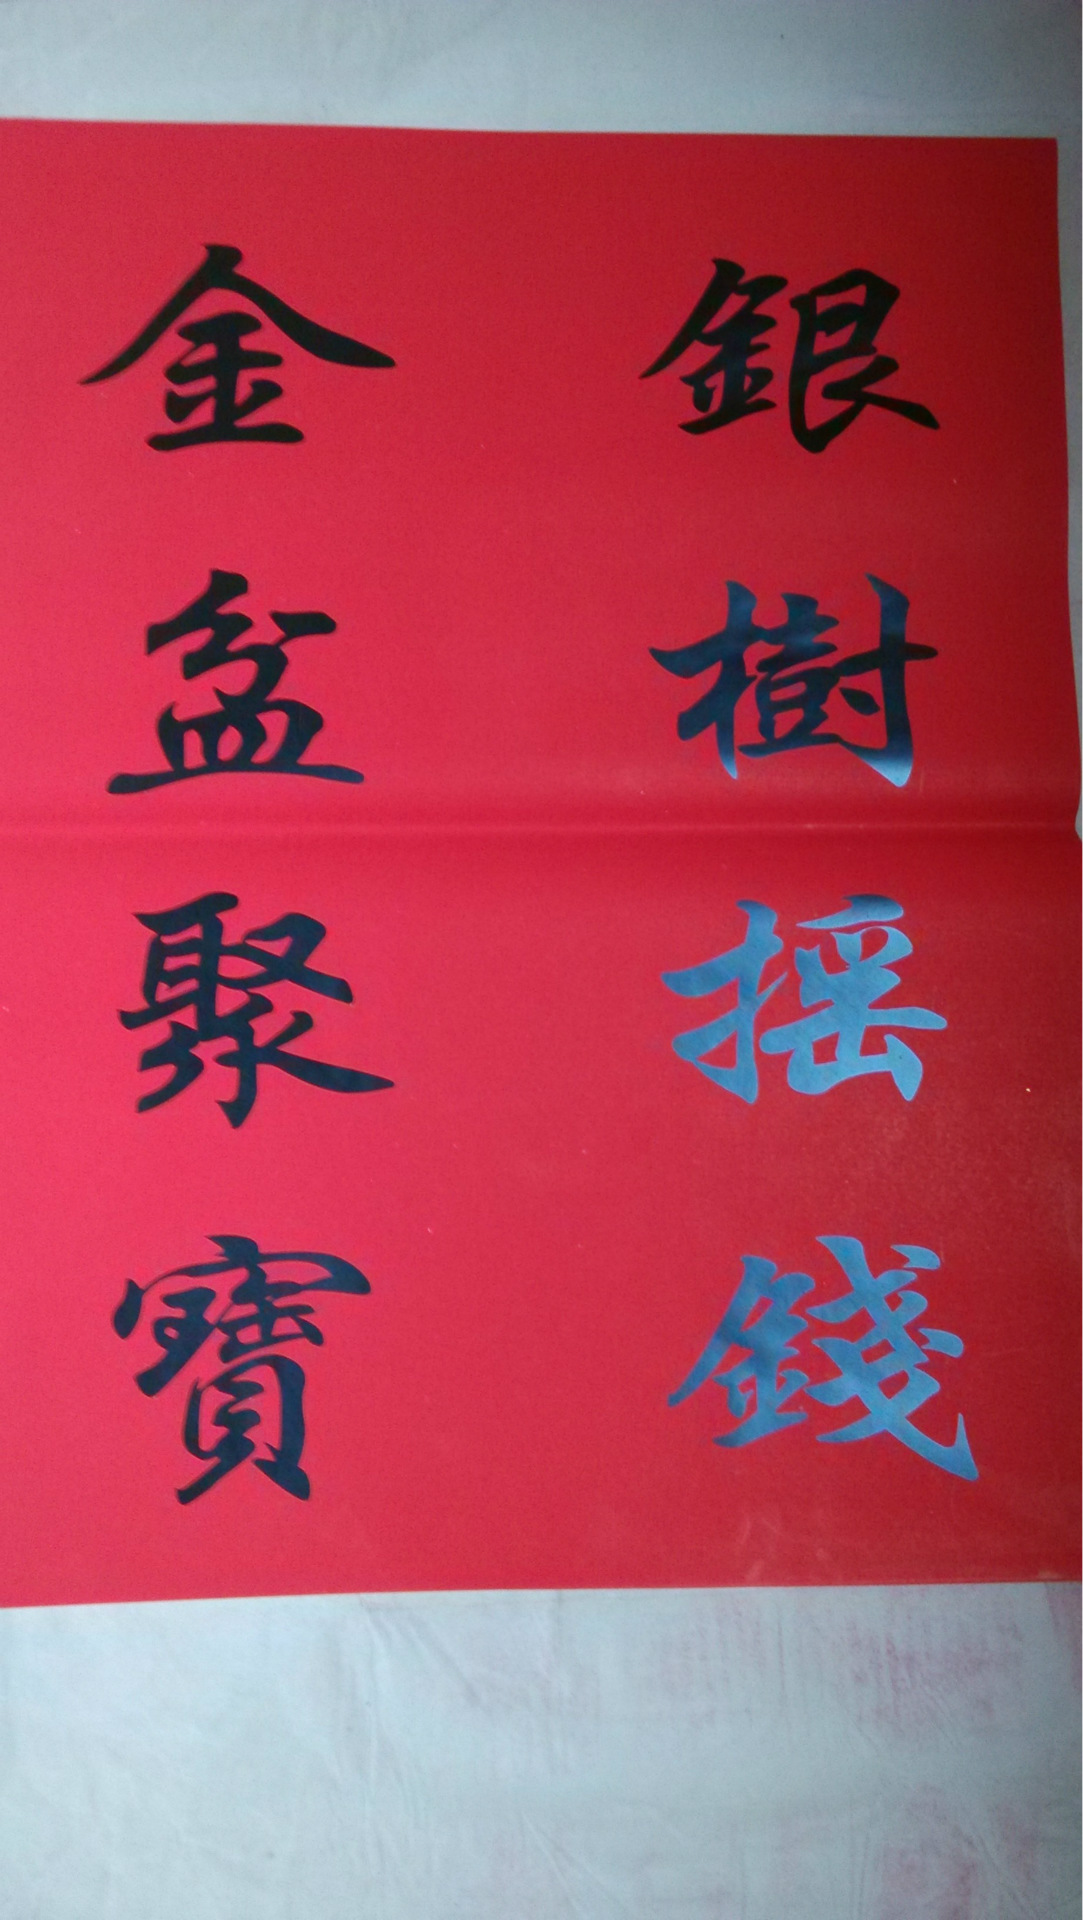 銀樹摇錢
金盆聚寶